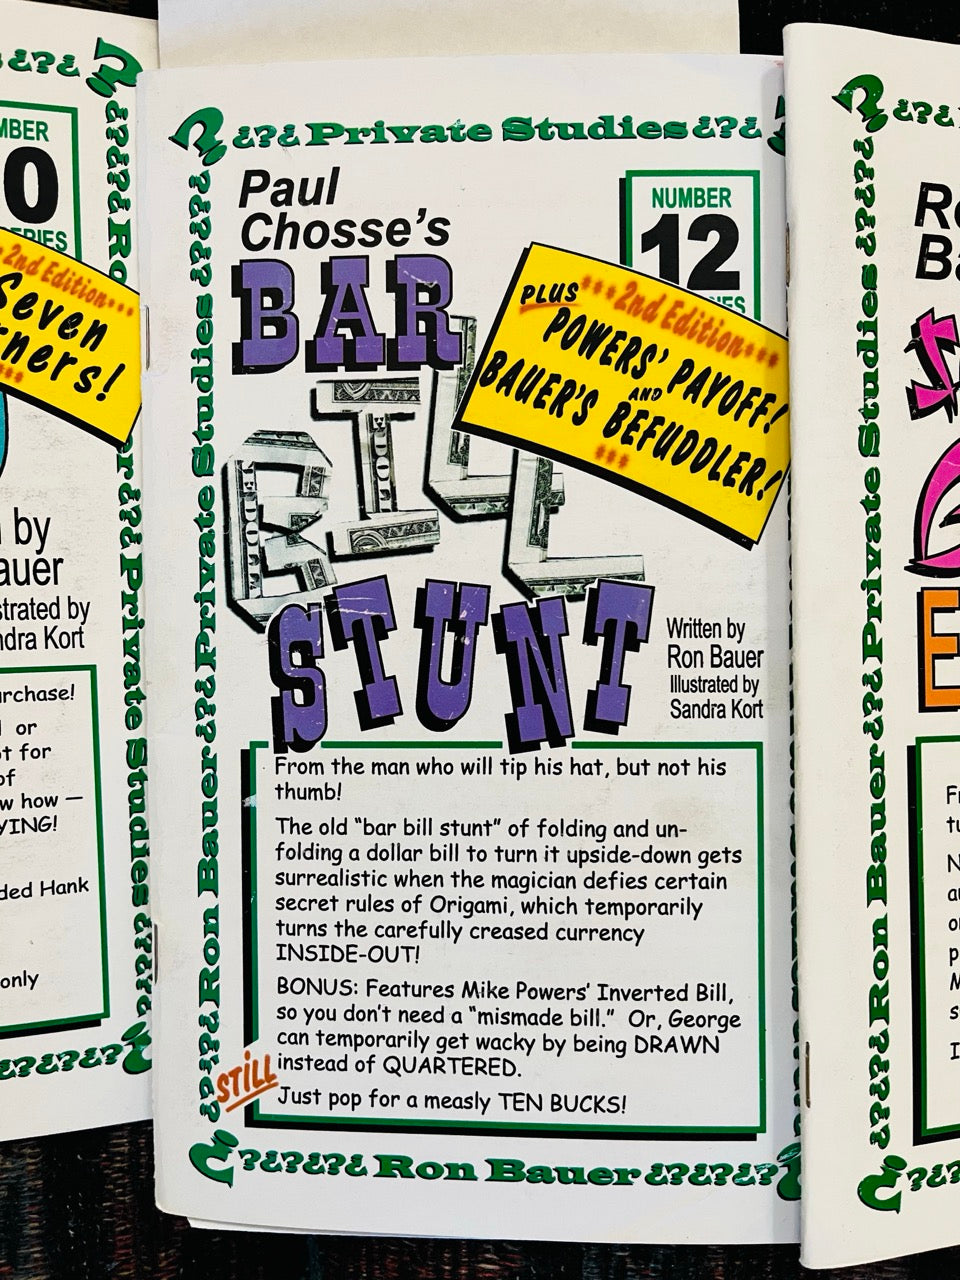 ¿?¿ Private Studies ¿?¿
Paul
Chosse's
BAR
BILL
STUNT
NUMBER
12
PLUS
***2nd Edition***
POWERS' PAYOFF!
AND
BAUER'S BEFUDDLER!
***
Written by
Ron Bauer
Illustrated by
Sandra Kort
From the man who will tip his hat, but not his
thumb!
The old "bar bill stunt" of folding and un-
folding a dollar bill to turn it upside-down gets
surrealistic when the magician defies certain
secret rules of Origami, which temporarily
turns the carefully creased currency
INSIDE-OUT!
BONUS: Features Mike Powers' Inverted Bill,
so you don't need a "mismade bill." Or, George
can temporarily get wacky by being DRAWN
instead of QUARTERED.
STILL
Just pop for a measly TEN BUCKS!
?¿?¿?¿ Ron Bauer ¿?¿?¿?
Ron Bauer ¿?¿ Private Studies
Private Studies
2nd Edition***
by
Sandra Kort
or
for
of
how —
Hank
only
Private Studies
Ron Bauer